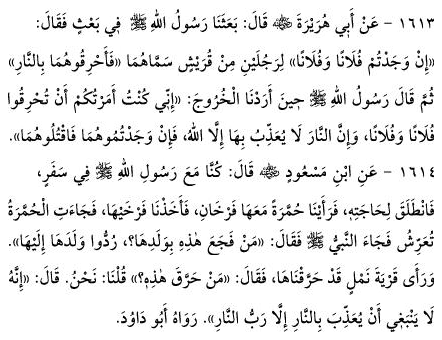 ١٦١٣ - عَنْ أَبِي هُرَيْرَةَ رضي الله عنه قَالَ: بَعَثَنَا رَسُولُ اللهِ ﷺ فِي بَعْثٍ فَقَالَ:
«إِنْ وَجَدْتُمْ فُلَانًا وَفُلَانًا» لِرَجُلَيْنِ مِنْ قُرَيْشٍ سَمَّاهُمَا «فَأَحْرِقُوهُمَا بِالنَّارِ»
ثُمَّ قَالَ رَسُولُ اللهِ ﷺ حِينَ أَرَدْنَا الْخُرُوجَ: «إِنِّي كُنْتُ أَمَرْتُكُمْ أَنْ تُحْرِقُوا
فُلَانًا وَفُلَانًا، وَإِنَّ النَّارَ لَا يُعَذِّبُ بِهَا إِلَّا اللهُ، فَإِنْ وَجَدْتُمُوهُمَا فَاقْتُلُوهُمَا».
١٦١٤ - عَنِ ابْنِ مَسْعُودٍ رضي الله عنه قَالَ: كُنَّا مَعَ رَسُولِ اللهِ ﷺ فِي سَفَرٍ،
فَانْطَلَقَ لِحَاجَتِهِ، فَرَأَيْنَا حُمَّرَةً مَعَهَا فَرْخَانِ، فَأَخَذْنَا فَرْخَيْهَا، فَجَاءَتِ الْحُمَّرَةُ
تُعَرِّشُ فَجَاءَ النَّبِيُّ ﷺ فَقَالَ: «مَنْ فَجَعَ هَذِهِ بِوَلَدِهَا؟، رُدُّوا وَلَدَهَا إِلَيْهَا».
وَرَأَى قَرْيَةَ نَمْلٍ قَدْ حَرَّقْنَاهَا، فَقَالَ: «مَنْ حَرَّقَ هَذِهِ؟» قُلْنَا: نَحْنُ. قَالَ: «إِنَّهُ
لَا يَنْبَغِي أَنْ يُعَذِّبَ بِالنَّارِ إِلَّا رَبُّ النَّارِ». رَوَاهُ أَبُو دَاوُدَ.